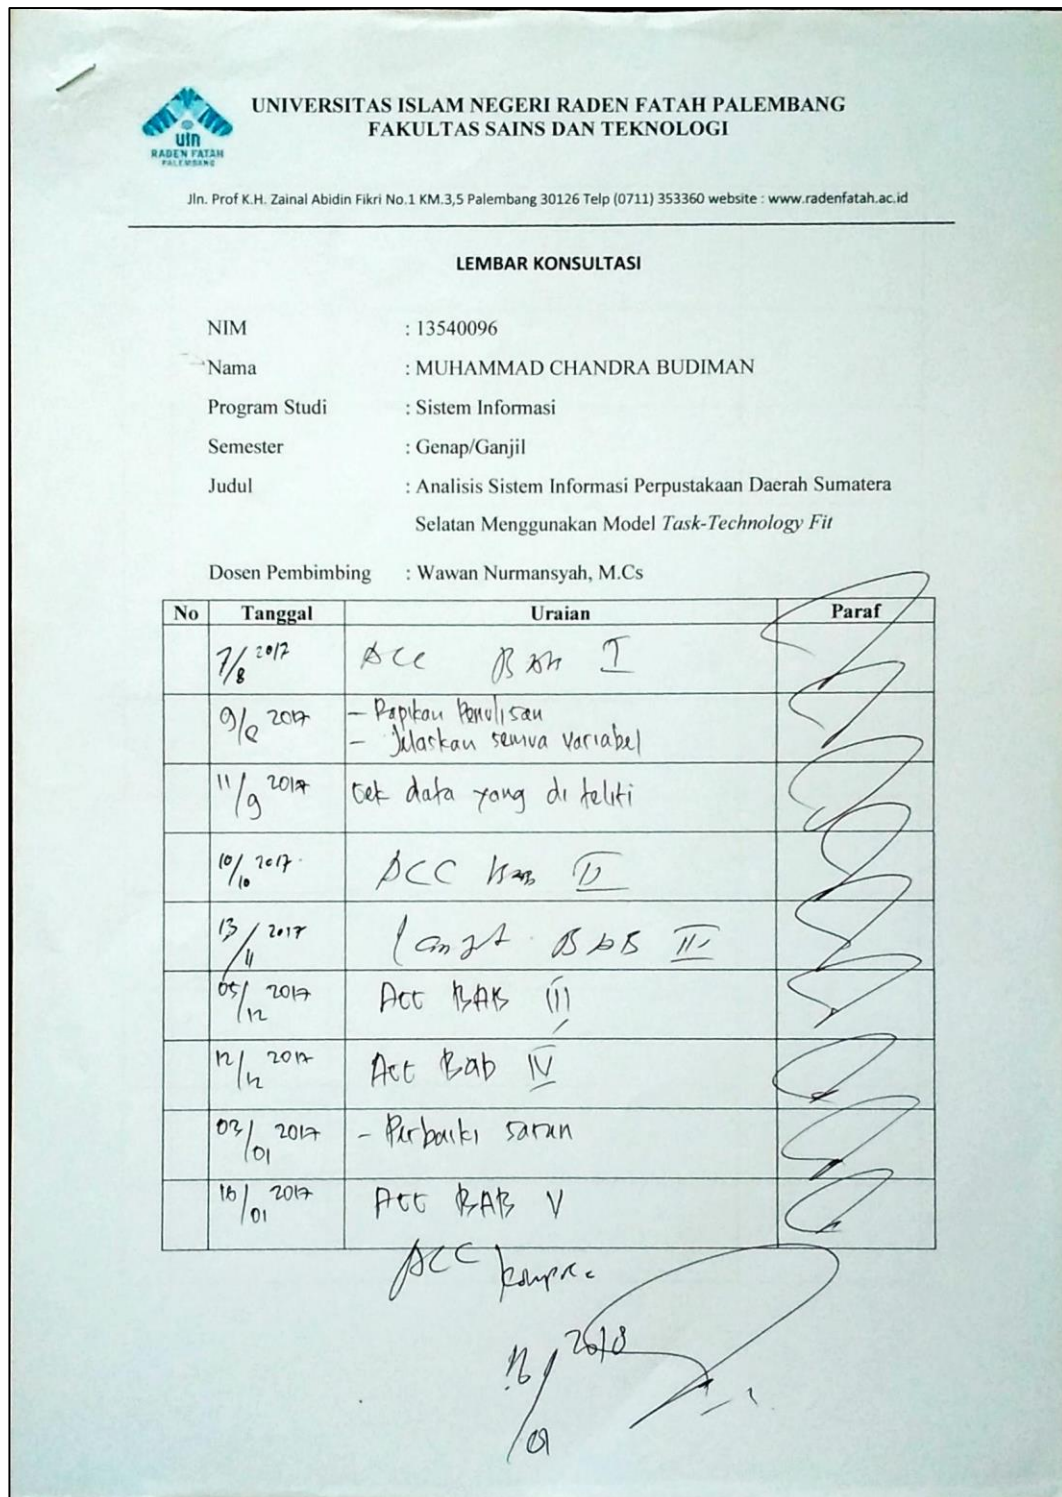 UNIVERSITAS ISLAM NEGERI RADEN FATAH PALEMBANG
FAKULTAS SAINS DAN TEKNOLOGI
uin
RADEN FATAH
PALEMBANG
Jln. Prof K.H. Zainal Abidin Fikri No.1 KM.3,5 Palembang 30126 Telp (0711) 353360 website : www.radenfatah.ac.id
LEMBAR KONSULTASI
NIM : 13540096
Nama : MUHAMMAD CHANDRA BUDIMAN
Program Studi : Sistem Informasi
Semester : Genap/Ganjil
Judul : Analisis Sistem Informasi Perpustakaan Daerah Sumatera
Selatan Menggunakan Model Task-Technology Fit
Dosen Pembimbing : Wawan Nurmansyah, M.Cs
No Tanggal Uraian Paraf
7/8 2017 ACC Bab I
2017 - Rapikan Penulisan
- Jelaskan semua variabel
11/9 2017 Cek data yang di teliti
10/10 2017 ACC Bab II
13/11 2017 Lanjut BAB
05/12 2017 Acc BAB III
12/12 2017 Acc Bab IV
03/01 2017 - Perbaiki saran
16/01 2017 Acc BAB V
ACC kompre
16/01 2018